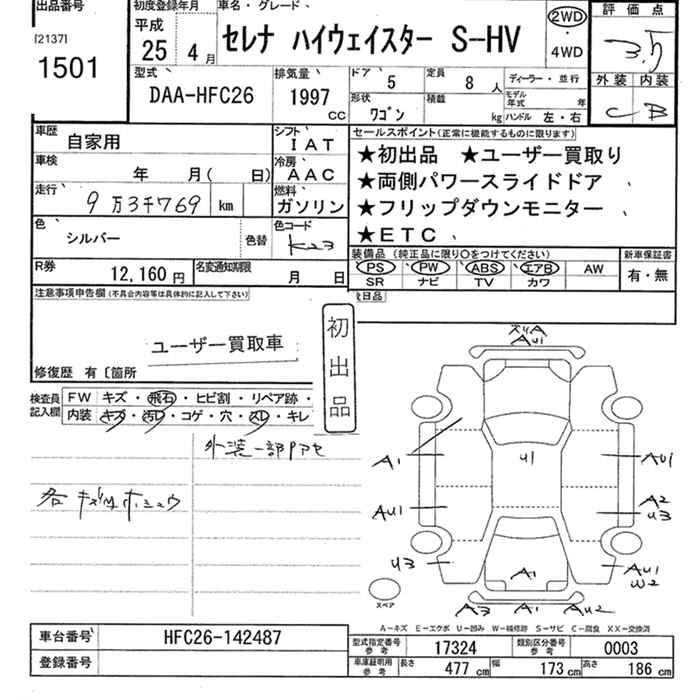 出品番号
[2137]
1501
初度登録年月
平成
25 4月
車名・グレード
セレナ ハイウェイスター S-HV
2WD
・
4WD
評価点
3.5
外装 内装
C B
型式
DAA-HFC26
排気量
1997 CC
ドア 5
定員 8 人
形状 ワゴン
積載 kg
ディーラー・並行
モデル年式 年
ハンドル 左・右
車歴 自家用
シフト IAT
車検 年 月( 日)
冷房 AAC
走行 9万3千769 km
燃料 ガソリン
色 シルバー
色替
色コード K23
R券 12,160円
名変通知期限 月 日
セールスポイント(正常に機能するものに限ります)
★初出品 ★ユーザー買取り
★両側パワースライドドア
★フリップダウンモニター
★ETC
装備品 (純正品に限り○をつけてください)
PS PW ABS エアB AW
SR ナビ TV カワ
新車保証書
有・無
注意事項申告欄(不具合内容等は具体的に記入して下さい)
ユーザー買取車
初出品
修復歴 有〔箇所
検査員記入欄
FW キズ・飛石・ヒビ割・リペア跡・
内装 キズ・汚レ・コゲ・穴・スレ・キレ
外装一部Pアセ
各キズ凹ホシュウ
AU1
A1
U1
AU1
AU1
A2
U3
U3
AU1
W2
A1
スペア
A3 A1 AU2
A-キズ E-エクボ U-凹み W-補修跡 S-サビ C-腐食 XX-交換済
車台番号 HFC26-142487
登録番号
型式指定番号参考 17324
類別区分番号参考 0003
車庫証明用参考 長さ 477cm 幅 173cm 高さ 186cm